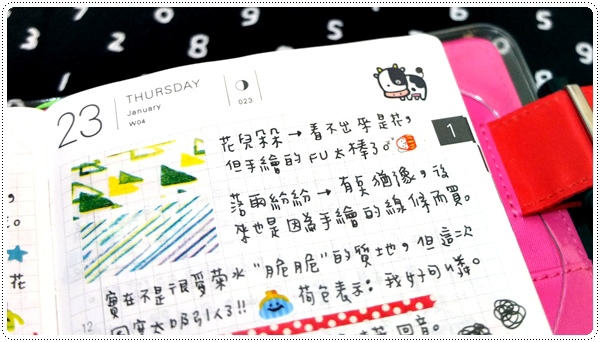 23
THURSDAY
January
W04
023
1
花兒朵朵→看不出來是花，
但手繪的FU太棒了。
落雨紛紛→有莫猶豫，後
來也是因為手繪的線條而買。
實在不是很愛菊水"脆脆"的質地，但這次
因實太吸引人了!!
荷包表示：我好可
12
花